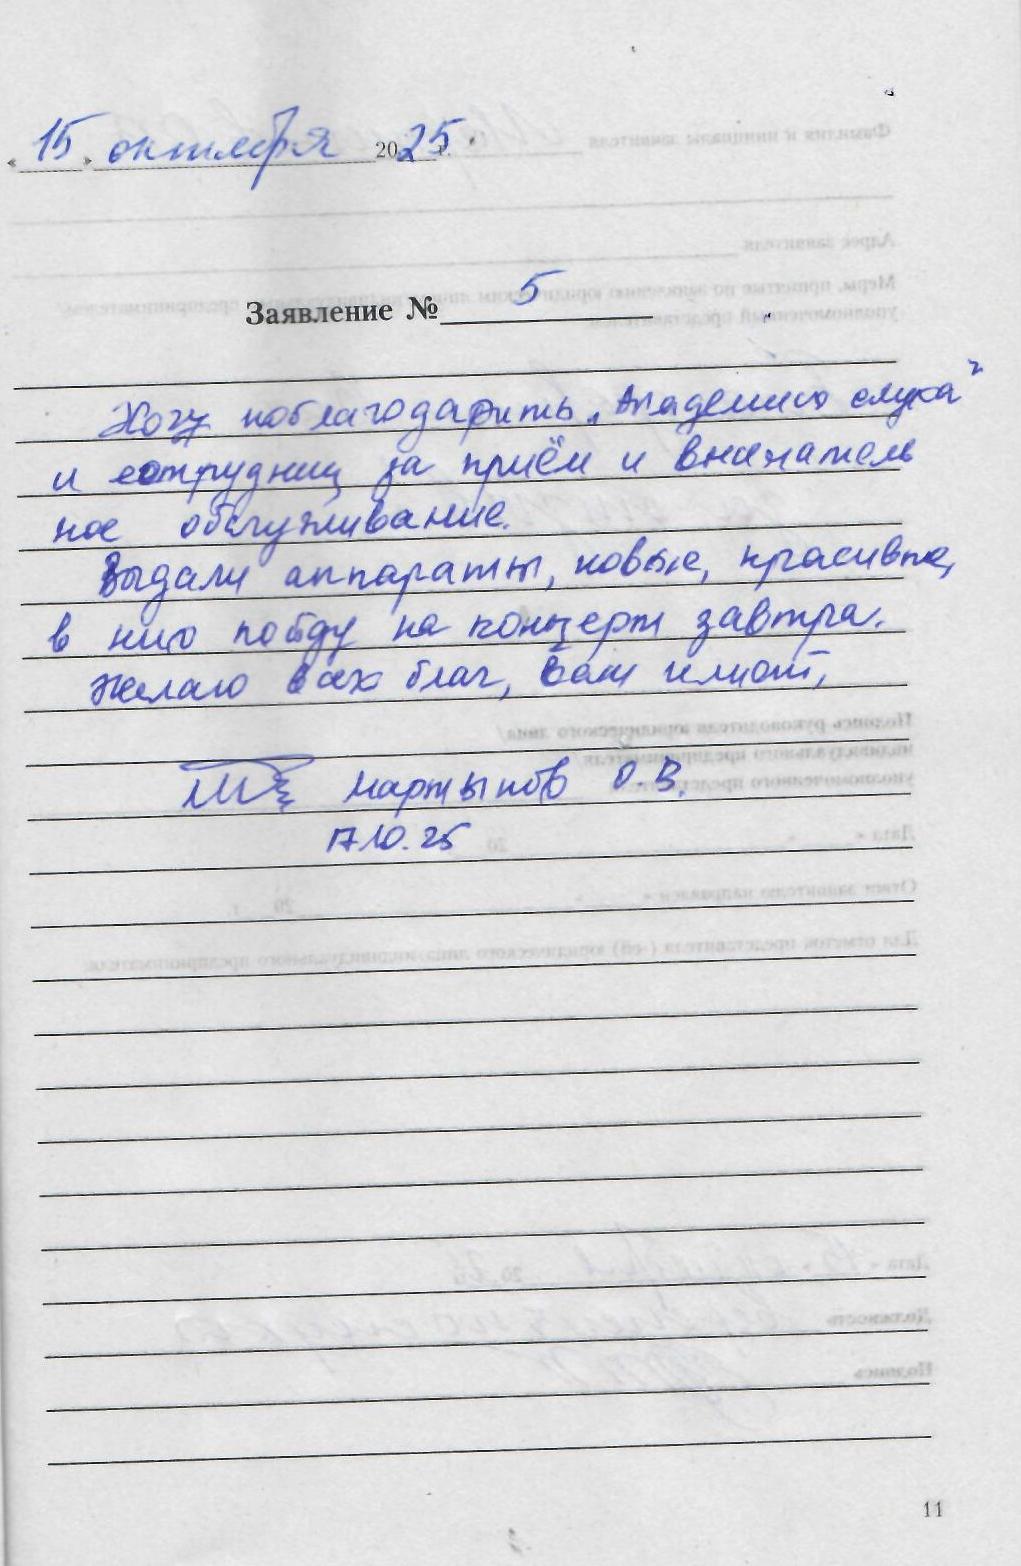 « 15 » октября 2025 г.
Заявление № 5
Хочу поблагодарить „Академию слуха"
и сотрудниц за приём и вниматель
ное обслуживание.
Выдали аппараты, новые, красивые,
в них пойду на концерт завтра.
Желаю всех благ, Ваш клиент,
Мартынов О.В.
17.10.25
11